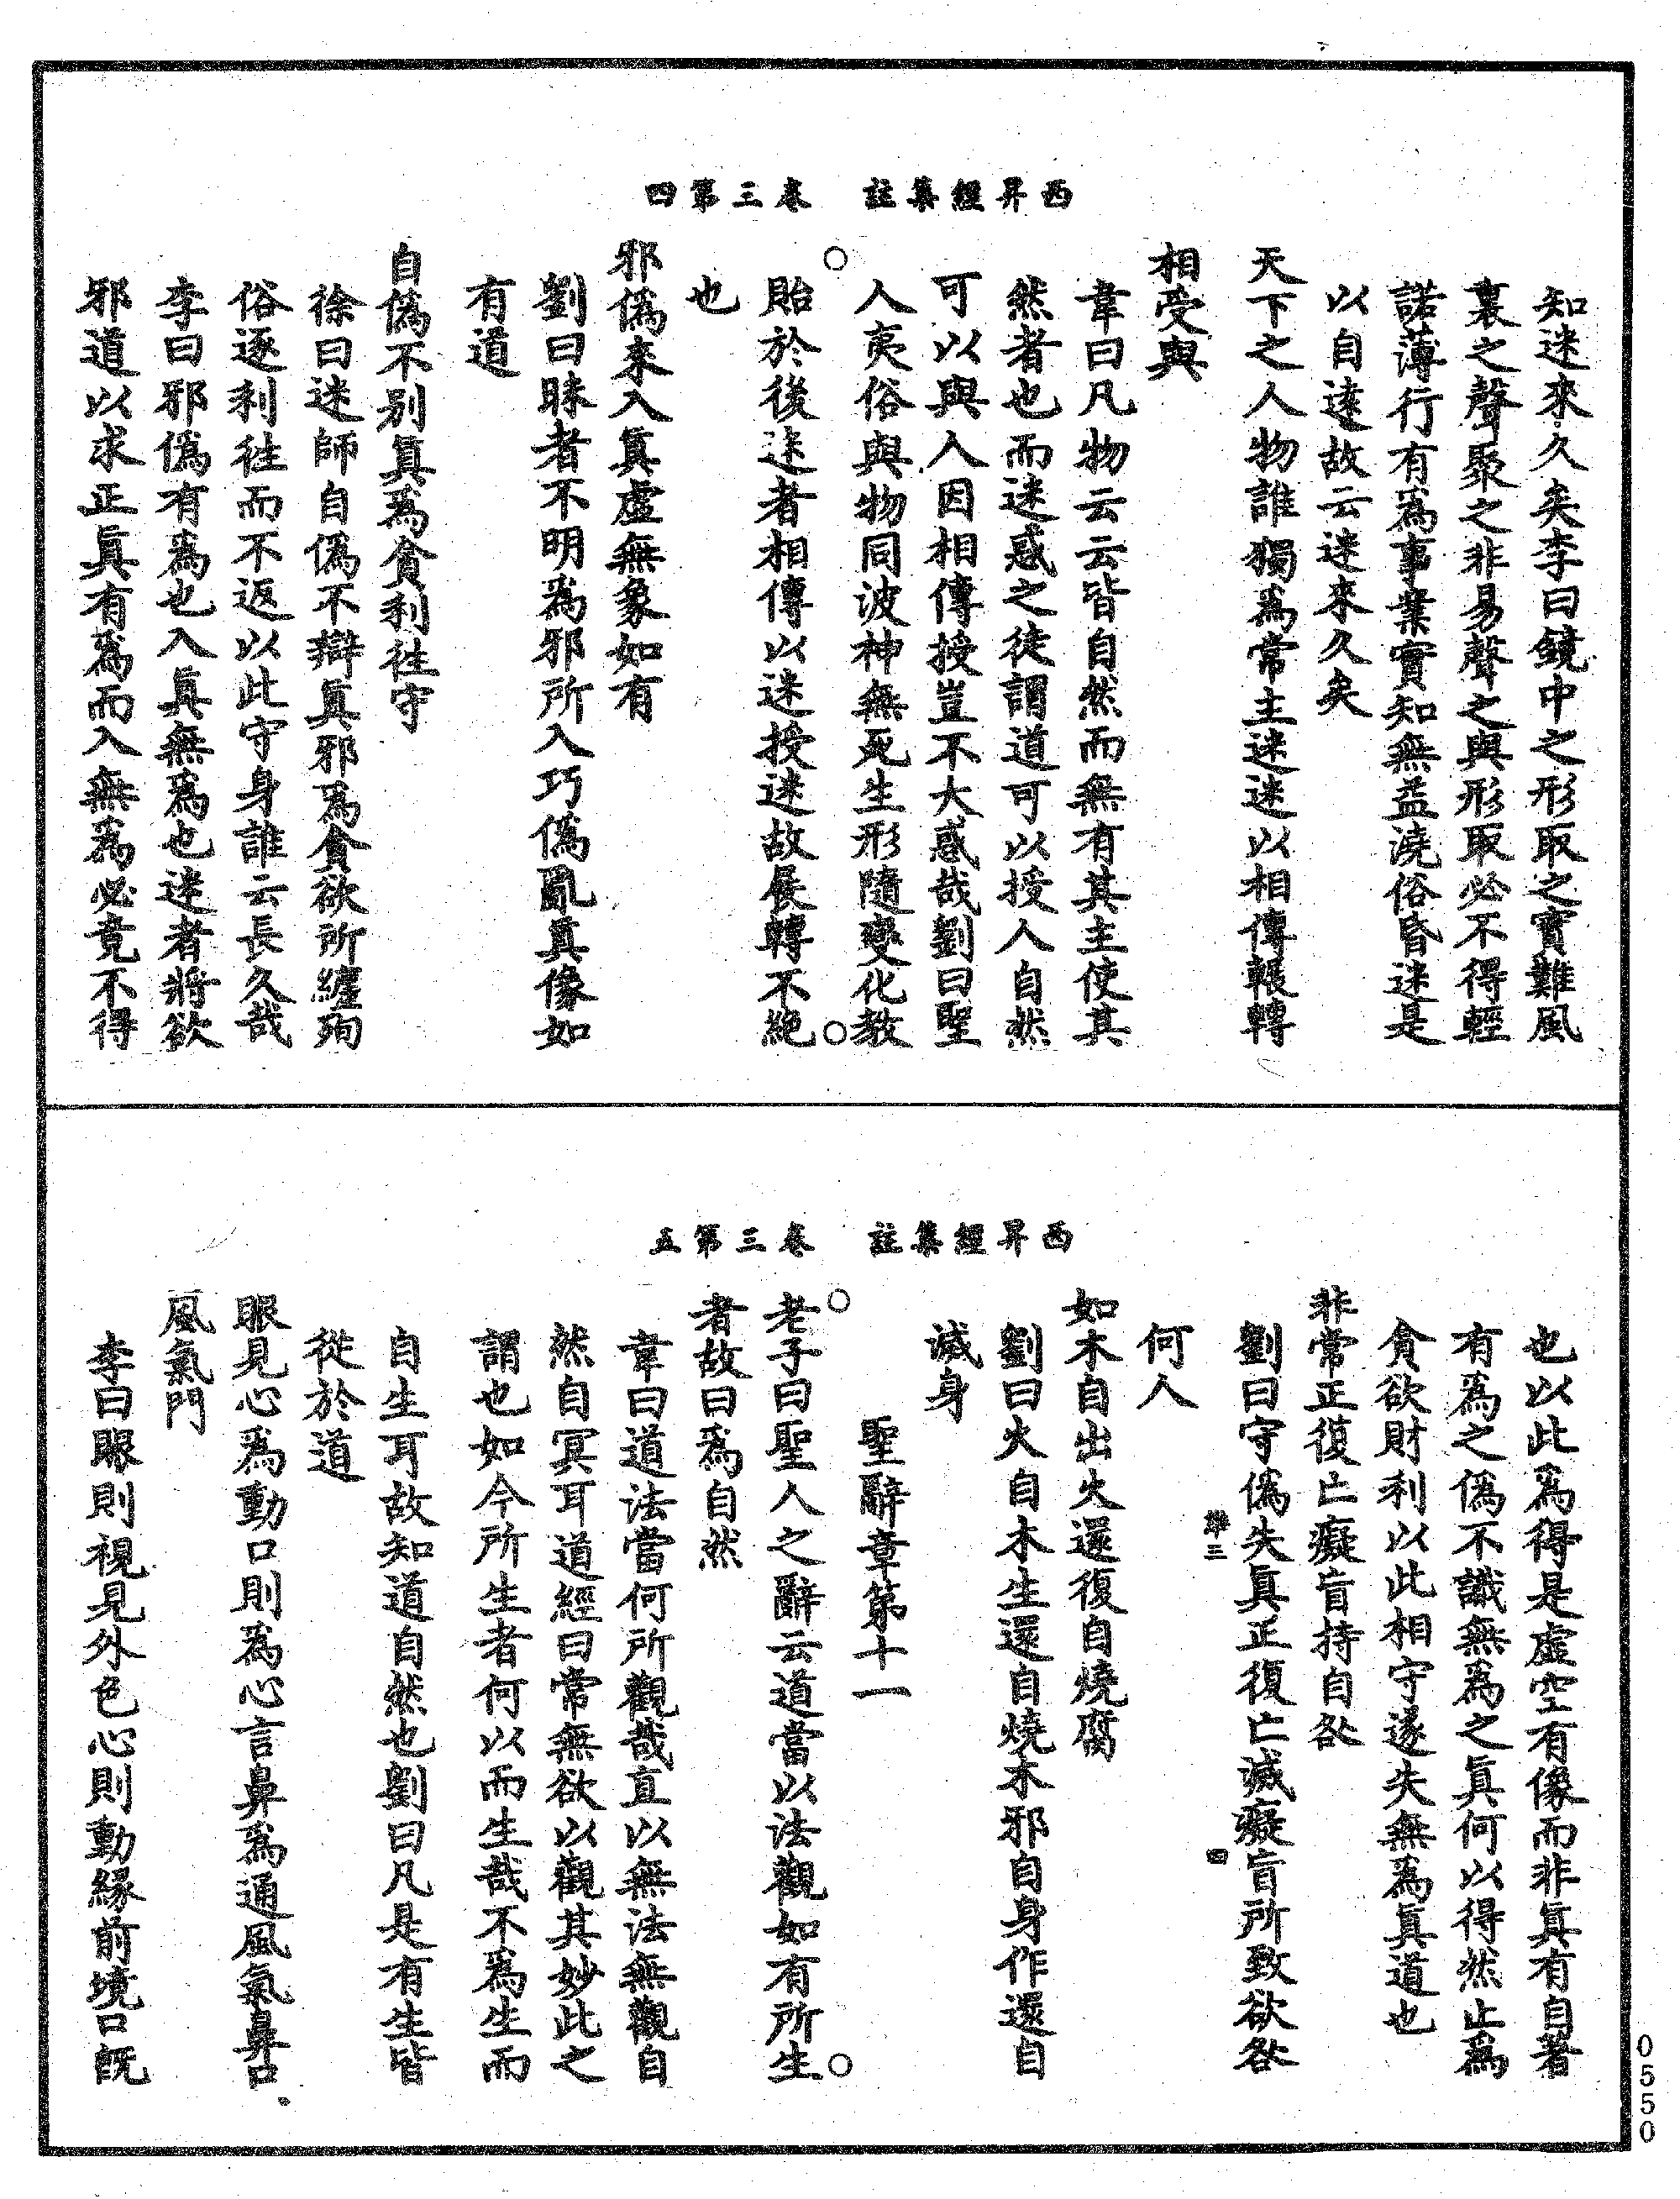 西昇經集註　卷三第四
知迷來久矣李曰鏡中之形取之實難風
裏之聲聚之非易聲之與形取必不得輕
諾薄行有爲事業實知無益澆俗昏迷是
以自遠故云迷來久矣
天下之人物誰獨爲常主迷迷以相傳輾轉
相受與
韋曰凡物云云皆自然而無有其主使其
然者也而迷惑之徒謂道可以授人自然
可以與入因相傳授豈不大惑哉劉曰聖
人夷俗與物同波神無死生形隨變化教
貽於後迷者相傳以迷授迷故展轉不絕
也
邪僞來入眞虛無象如有
劉曰昧者不明爲邪所入巧僞亂眞像如
有道
自僞不別眞爲貪利往守
徐曰迷師自僞不辯眞邪爲貪欲所纏殉
俗逐利往而不返以此守身誰云長久哉
李曰邪僞有爲也入眞無爲也迷者將欲
邪道以求正眞有爲而入無爲必竟不得
西昇經集註　卷三第五
也以此爲得是虛空有像而非眞有自著
有爲之僞不識無爲之眞何以得然止爲
貪欲財利以此相守遂失無爲眞道也
非常正復亡癡盲持自咎
劉曰守僞失眞正復亡滅癡盲所致欲咎
三　四
何人
如木自出火還復自燒腐
劉曰火自木生還自燒木邪自身作還自
滅身
聖辭章第十一
老子曰聖人之辭云道當以法觀如有所生
者故曰爲自然
韋曰道法當何所觀哉直以無法無觀自
然自冥耳道經曰常無欲以觀其妙此之
謂也如今所生者何以而生哉不爲生而
自生耳故知道自然也劉曰凡是有生皆
從於道
眼見心爲動口則爲心言鼻爲通風氣鼻口
風氣門
李曰眼則視見外色心則動緣前境口旣
0550